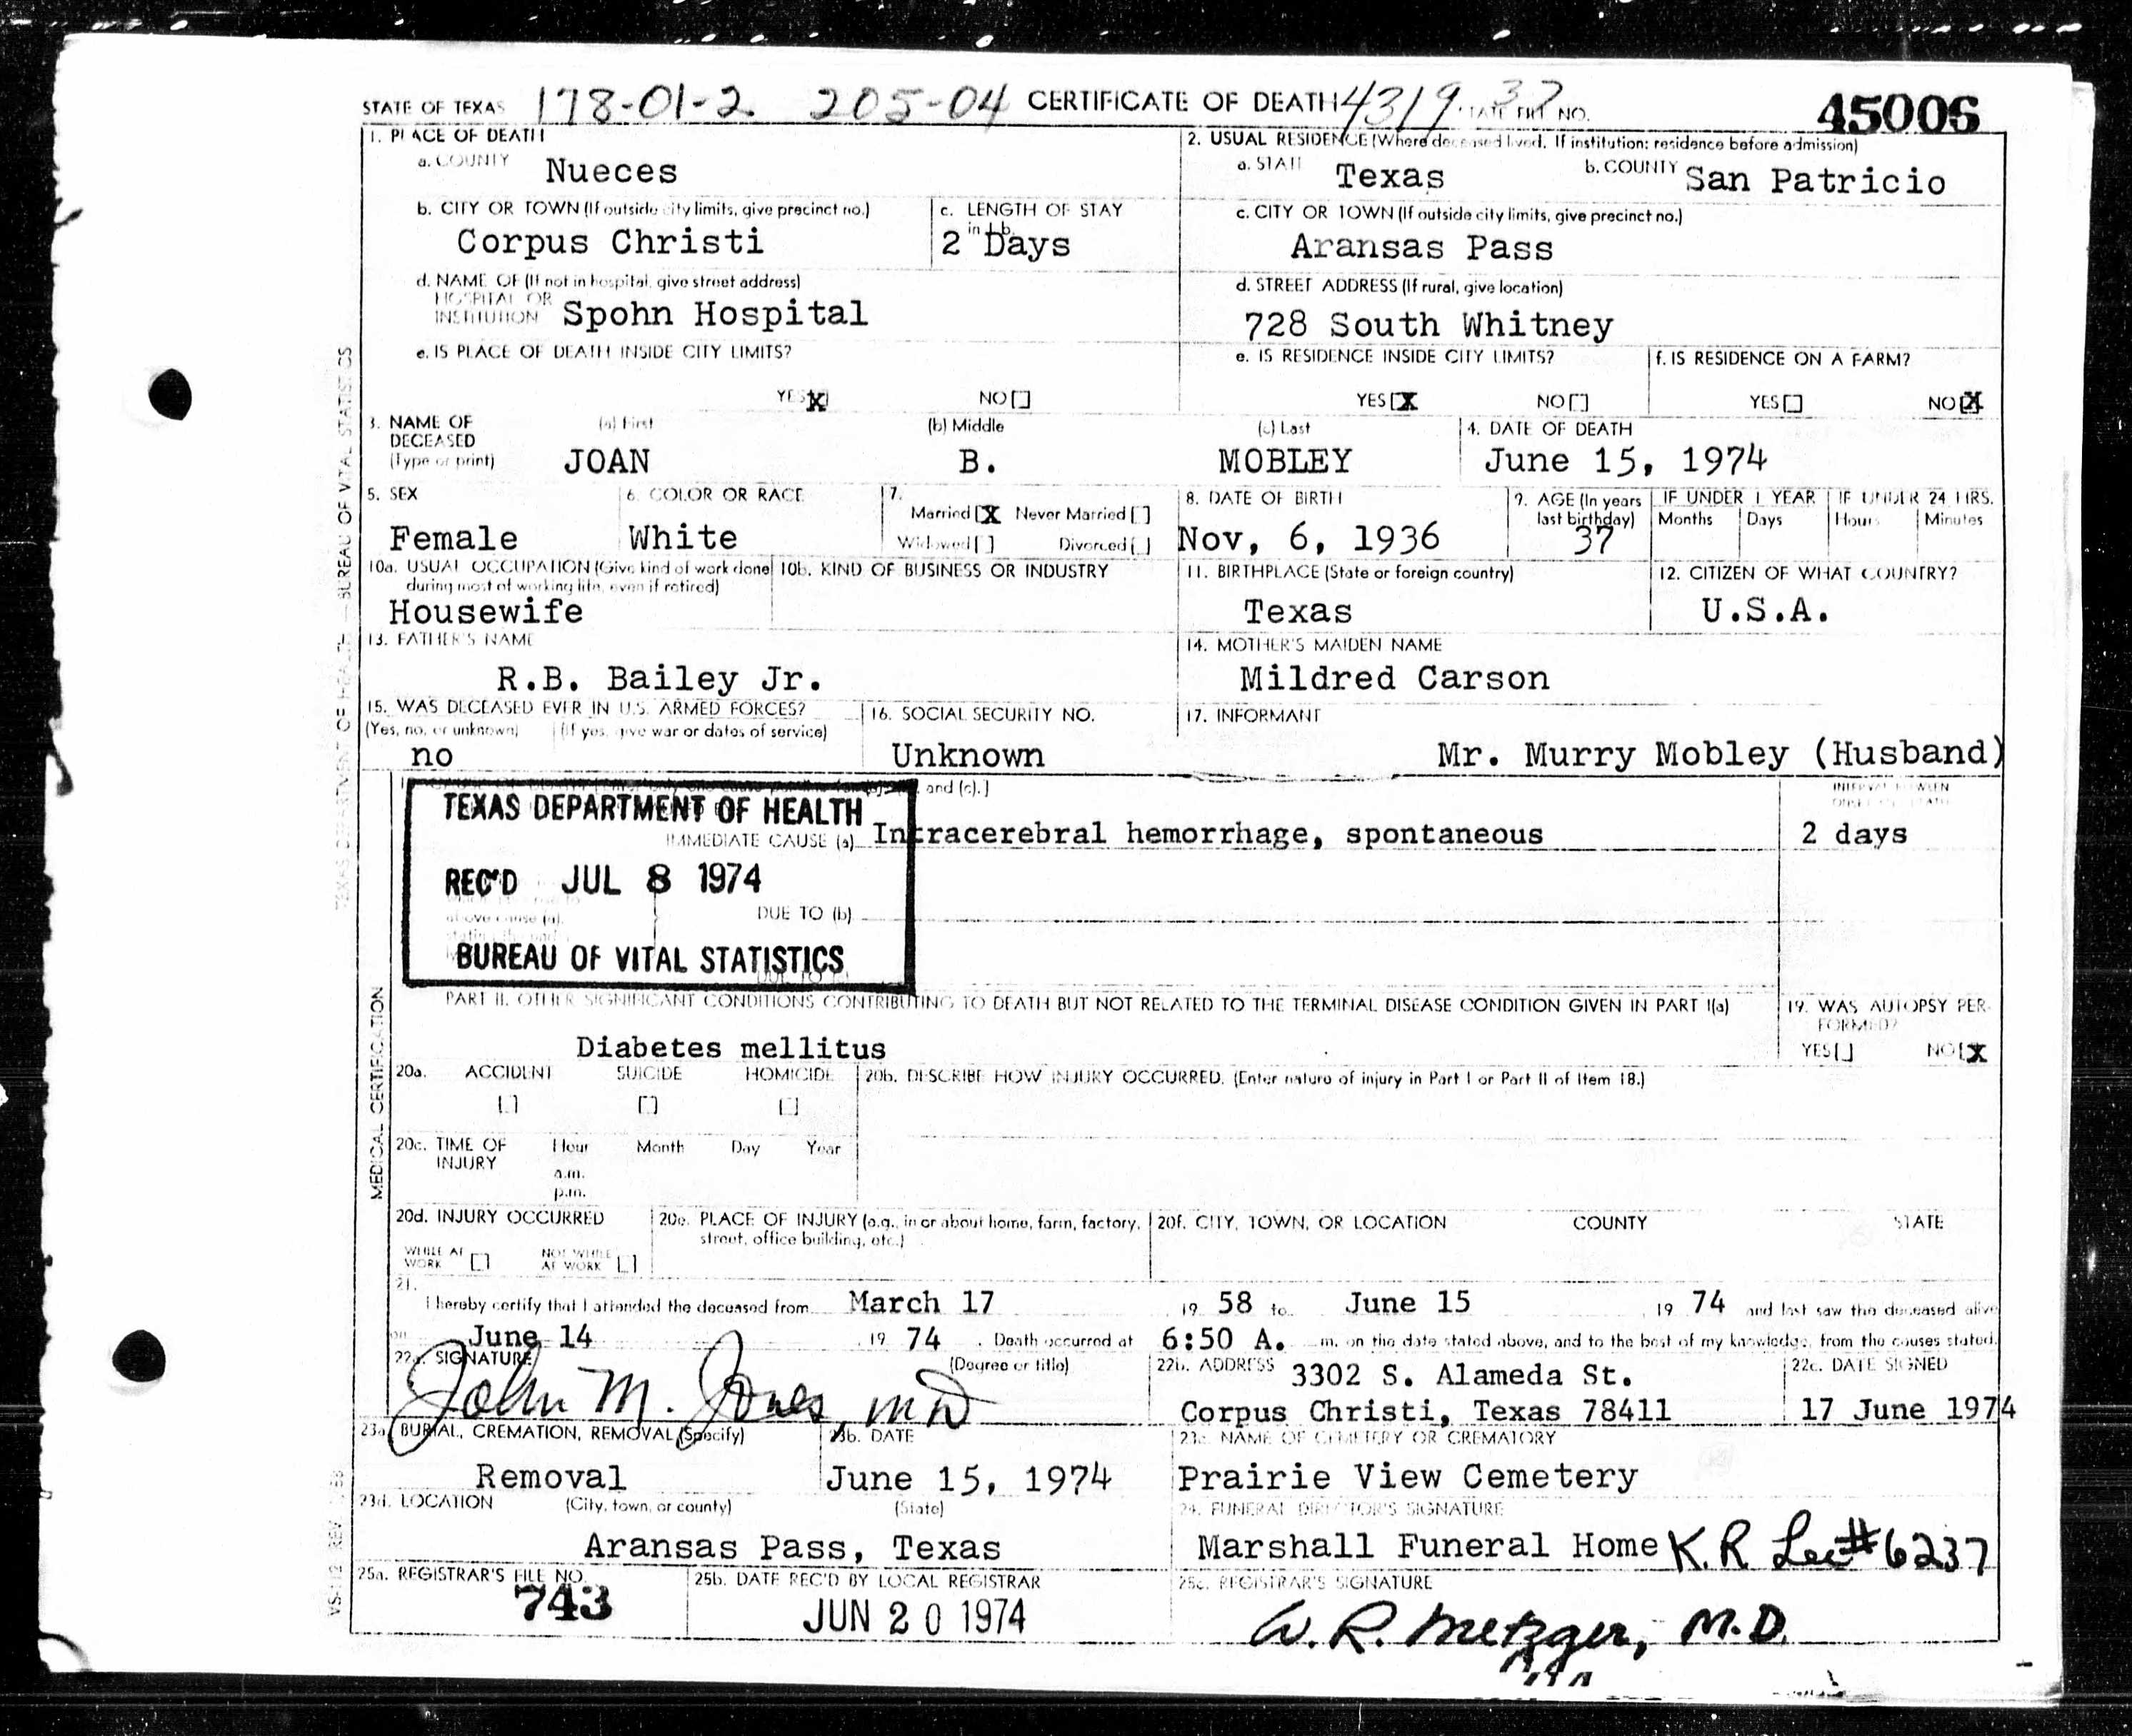 STATE OF TEXAS 178-01-2 205-04 CERTIFICATE OF DEATH 4319.37 STATE FILE NO. 45006
1. PLACE OF DEATH
a. COUNTY Nueces
b. CITY OR TOWN (If outside city limits, give precinct no.)
Corpus Christi
c. LENGTH OF STAY
in 1b.
2 Days
d. NAME OF (If not in hospital, give street address)
HOSPITAL OR
INSTITUTION Spohn Hospital
e. IS PLACE OF DEATH INSIDE CITY LIMITS?
YES [X] NO [ ]
2. USUAL RESIDENCE (Where deceased lived. If institution: residence before admission)
a. STATE Texas b. COUNTY San Patricio
c. CITY OR TOWN (If outside city limits, give precinct no.)
Aransas Pass
d. STREET ADDRESS (If rural, give location)
728 South Whitney
e. IS RESIDENCE INSIDE CITY LIMITS?
YES [X] NO [ ]
f. IS RESIDENCE ON A FARM?
YES [ ] NO [X]
3. NAME OF DECEASED (Type or print)
(a) First (b) Middle (c) Last
JOAN B. MOBLEY
4. DATE OF DEATH
June 15, 1974
5. SEX
Female
6. COLOR OR RACE
White
7.
Married [X] Never Married [ ]
Widowed [ ] Divorced [ ]
8. DATE OF BIRTH
Nov, 6, 1936
9. AGE (In years last birthday)
37
IF UNDER 1 YEAR
Months Days
IF UNDER 24 HRS.
Hours Minutes
10a. USUAL OCCUPATION (Give kind of work done
during most of working life, even if retired)
Housewife
10b. KIND OF BUSINESS OR INDUSTRY
11. BIRTHPLACE (State or foreign country)
Texas
12. CITIZEN OF WHAT COUNTRY?
U.S.A.
13. FATHER'S NAME
R.B. Bailey Jr.
14. MOTHER'S MAIDEN NAME
Mildred Carson
15. WAS DECEASED EVER IN U.S. ARMED FORCES?
(Yes, no, or unknown) (If yes, give war or dates of service)
no
16. SOCIAL SECURITY NO.
Unknown
17. INFORMANT
Mr. Murry Mobley (Husband)
and (c).]
INTERVAL BETWEEN
TEXAS DEPARTMENT OF HEALTH
REC'D JUL 8 1974
BUREAU OF VITAL STATISTICS
IMMEDIATE CAUSE (a) Intracerebral hemorrhage, spontaneous
2 days
above cause (a),
DUE TO (b)
PART II. OTHER SIGNIFICANT CONDITIONS CONTRIBUTING TO DEATH BUT NOT RELATED TO THE TERMINAL DISEASE CONDITION GIVEN IN PART I(a)
Diabetes mellitus
19. WAS AUTOPSY PER-
FORMED?
YES [ ] NO [X]
20a. ACCIDENT SUICIDE HOMICIDE
[ ] [ ] [ ]
20b. DESCRIBE HOW INJURY OCCURRED. (Enter nature of injury in Part I or Part II of Item 18.)
20c. TIME OF INJURY
Hour Month Day Year
a.m.
p.m.
20d. INJURY OCCURRED
WHILE AT WORK [ ] NOT WHILE AT WORK [ ]
20e. PLACE OF INJURY (e.g., in or about home, farm, factory,
street, office building, etc.)
20f. CITY, TOWN, OR LOCATION COUNTY STATE
21.
I hereby certify that I attended the deceased from March 17 19 58 to June 15 19 74 and last saw the deceased alive
on June 14 19 74. Death occurred at 6:50 A. m. on the date stated above, and to the best of my knowledge, from the causes stated.
22a. SIGNATURE (Degree or title)
John M. Jones, MD
22b. ADDRESS 3302 S. Alameda St.
Corpus Christi, Texas 78411
22c. DATE SIGNED
17 June 1974
23a. BURIAL, CREMATION, REMOVAL (Specify)
Removal
23b. DATE
June 15, 1974
23c. NAME OF CEMETERY OR CREMATORY
Prairie View Cemetery
23d. LOCATION (City, town, or county) (State)
Aransas Pass, Texas
24. FUNERAL DIRECTOR'S SIGNATURE
Marshall Funeral Home K.R Lee #6237
25a. REGISTRAR'S FILE NO.
743
25b. DATE REC'D BY LOCAL REGISTRAR
JUN 20 1974
25c. REGISTRAR'S SIGNATURE
W. R. Metzger, M.D.
TEXAS DEPARTMENT OF HEALTH — BUREAU OF VITAL STATISTICS
MEDICAL CERTIFICATION